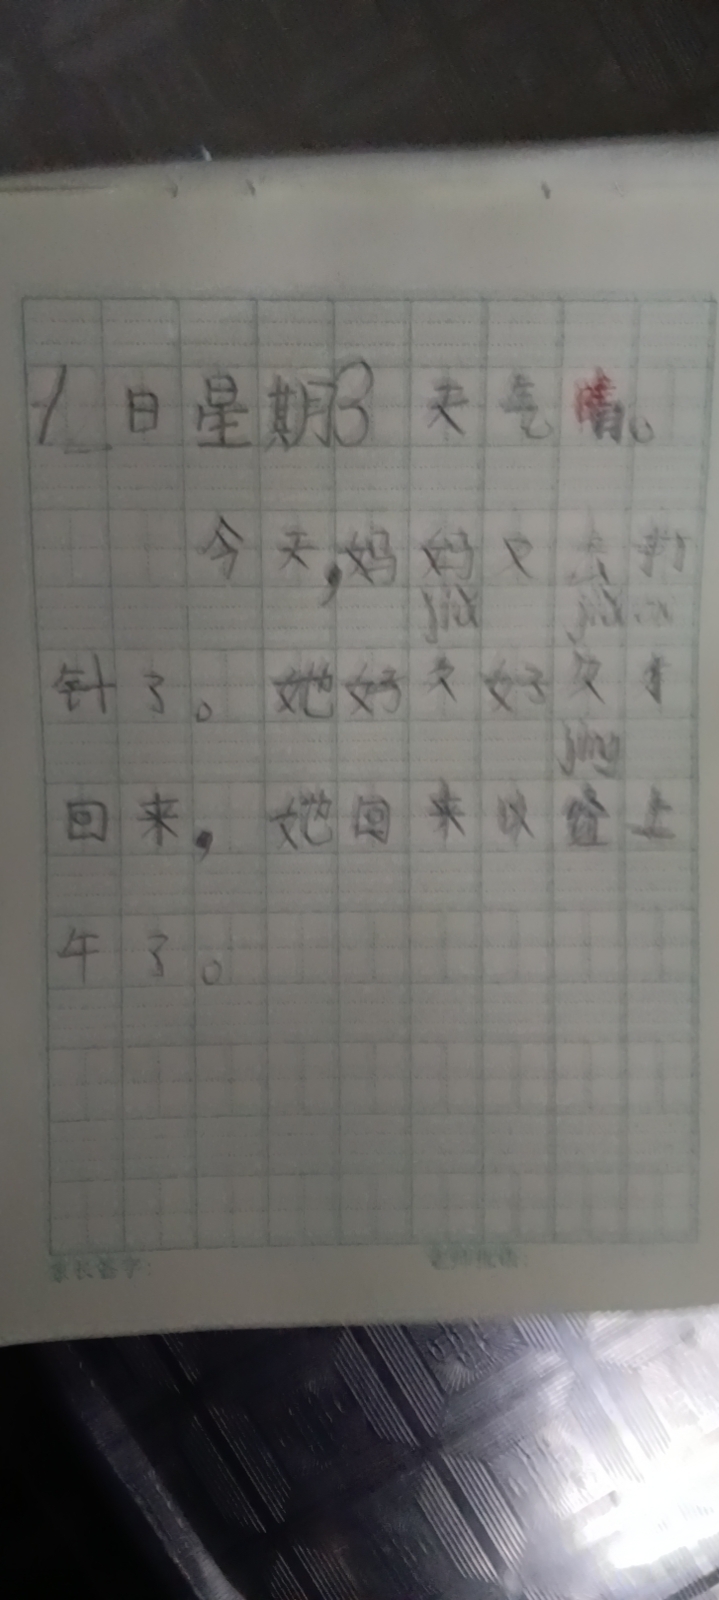 日星期3 天气晴。
今天,妈妈又去打
jiǔ jiǔ
针了。她好久好久才
jing
回来,她回来以经上
午了。
家长签字: